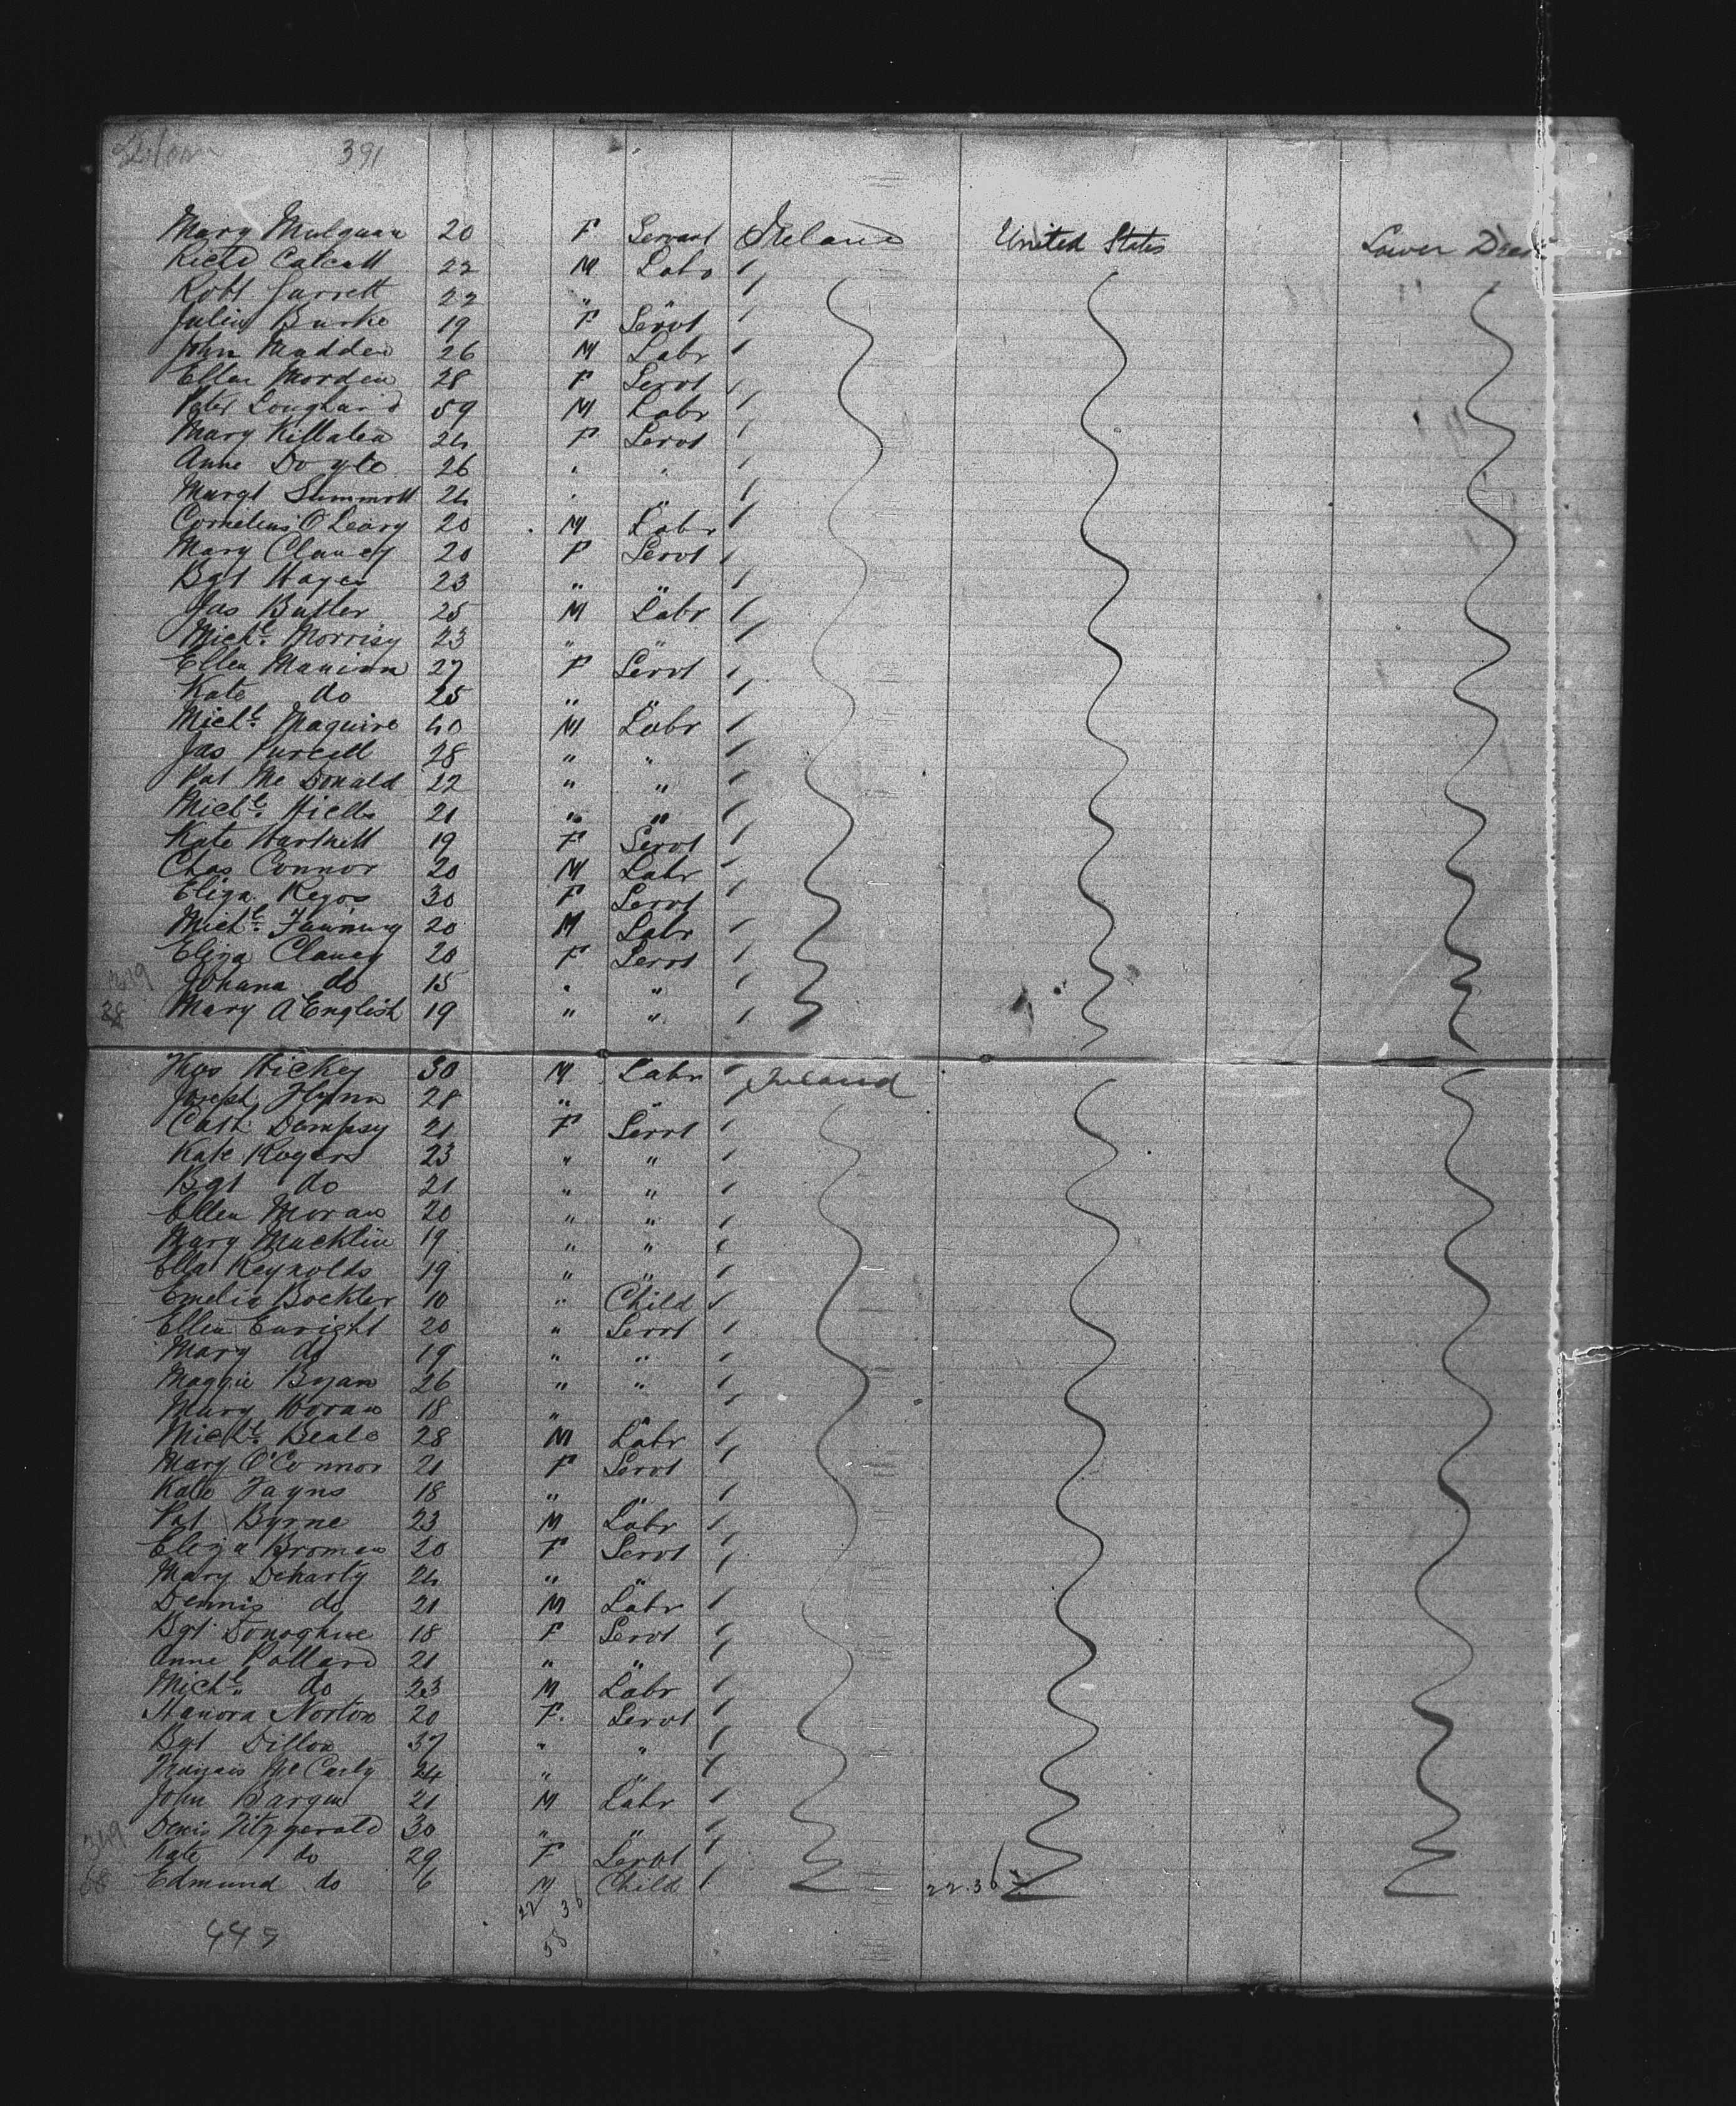 391
Mary Mulquan 20 F Servant Ireland United States Lower Deck
Richd Calcutt 22 M Labr
Robt Jarrett 22 " "
Julia Burke 19 F Servt
John Madden 26 M Labr
Ellen Morden 28 F Servt
Peter 59 M Labr
Mary Killalea 24 F Servt
Anne Doyle 26 " "
Margt 24 " "
Cornelius O'Leary 20 M Labr
Mary Clancy 20 F Servt
Bgt Hayes 23 " "
Jas Butler 25 M Labr
Michl. Morrisy 23 " "
Ellen 27 F Servt
Kate do 25 " "
Michl. Maguire 40 M Labr
Jas Purcell 28 " "
Pat Mc Donald 22 " "
Michl. 21 " "
Kate Hartnett 19 F Servt
Chas Connor 20 M Labr
Eliza 30 F Servt
Michl. Fanning 20 M Labr
Eliza Clancy 20 F Servt
Johana do 15 " "
Mary A English 19 " "
Thos Hickey 30 M Labr Ireland
Joseph Flynn 28 " "
Cath Dempsy 21 F Servt
Kate Rogers 23 " "
Bgt do 21 " "
Ellen Moran 20 " "
Mary Macklin 19 " "
Ella Reynolds 19 " "
Emelia Bockler 10 " Child
Ellen Enright 20 " Servt
Mary do 19 " "
Maggie Ryan 26 " "
Mary Horan 18 " "
Michl. Beale 28 M Labr
Mary O'Connor 21 F Servt
Kate Fayns 18 " "
Pat Byrne 23 M Labr
Eliza 20 F Servt
Mary Deharty 24 " "
Dennis do 21 M Labr
Bgt Donoghue 18 F Servt
Anne Pollard 21 " "
Michl. do 23 M Labr
Hanora Norton 20 F. Servt
Bgt Dillon 37 " "
Mc Carty 24 " "
John Bargen 21 M Labr
Denis Fitzgerald 30 " "
Kate do 29 F Servt
Edmund do 6 M Child 22.36
22 36
58
445